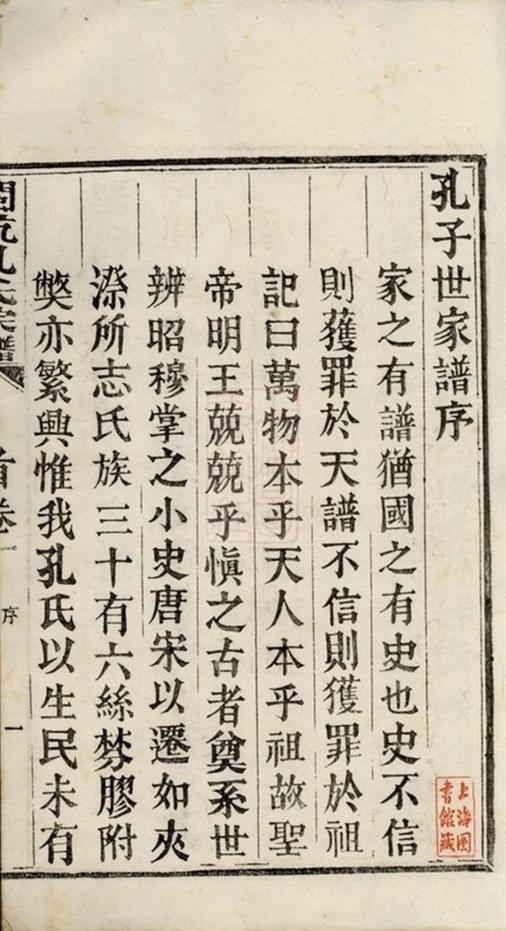 孔子世家譜序
家之有譜猶國之有史也史不信
則獲罪於天譜不信則獲罪於祖
記曰萬物本乎天人本乎祖故聖
帝明王兢兢乎愼之古者奠系世
辨昭穆掌之小史唐宋以遷如夾
漈所志氏族三十有六絲棼膠附
獘亦繁興惟我孔氏以生民未有
孔氏宗譜
首卷一
序
一
上海圖
書館藏